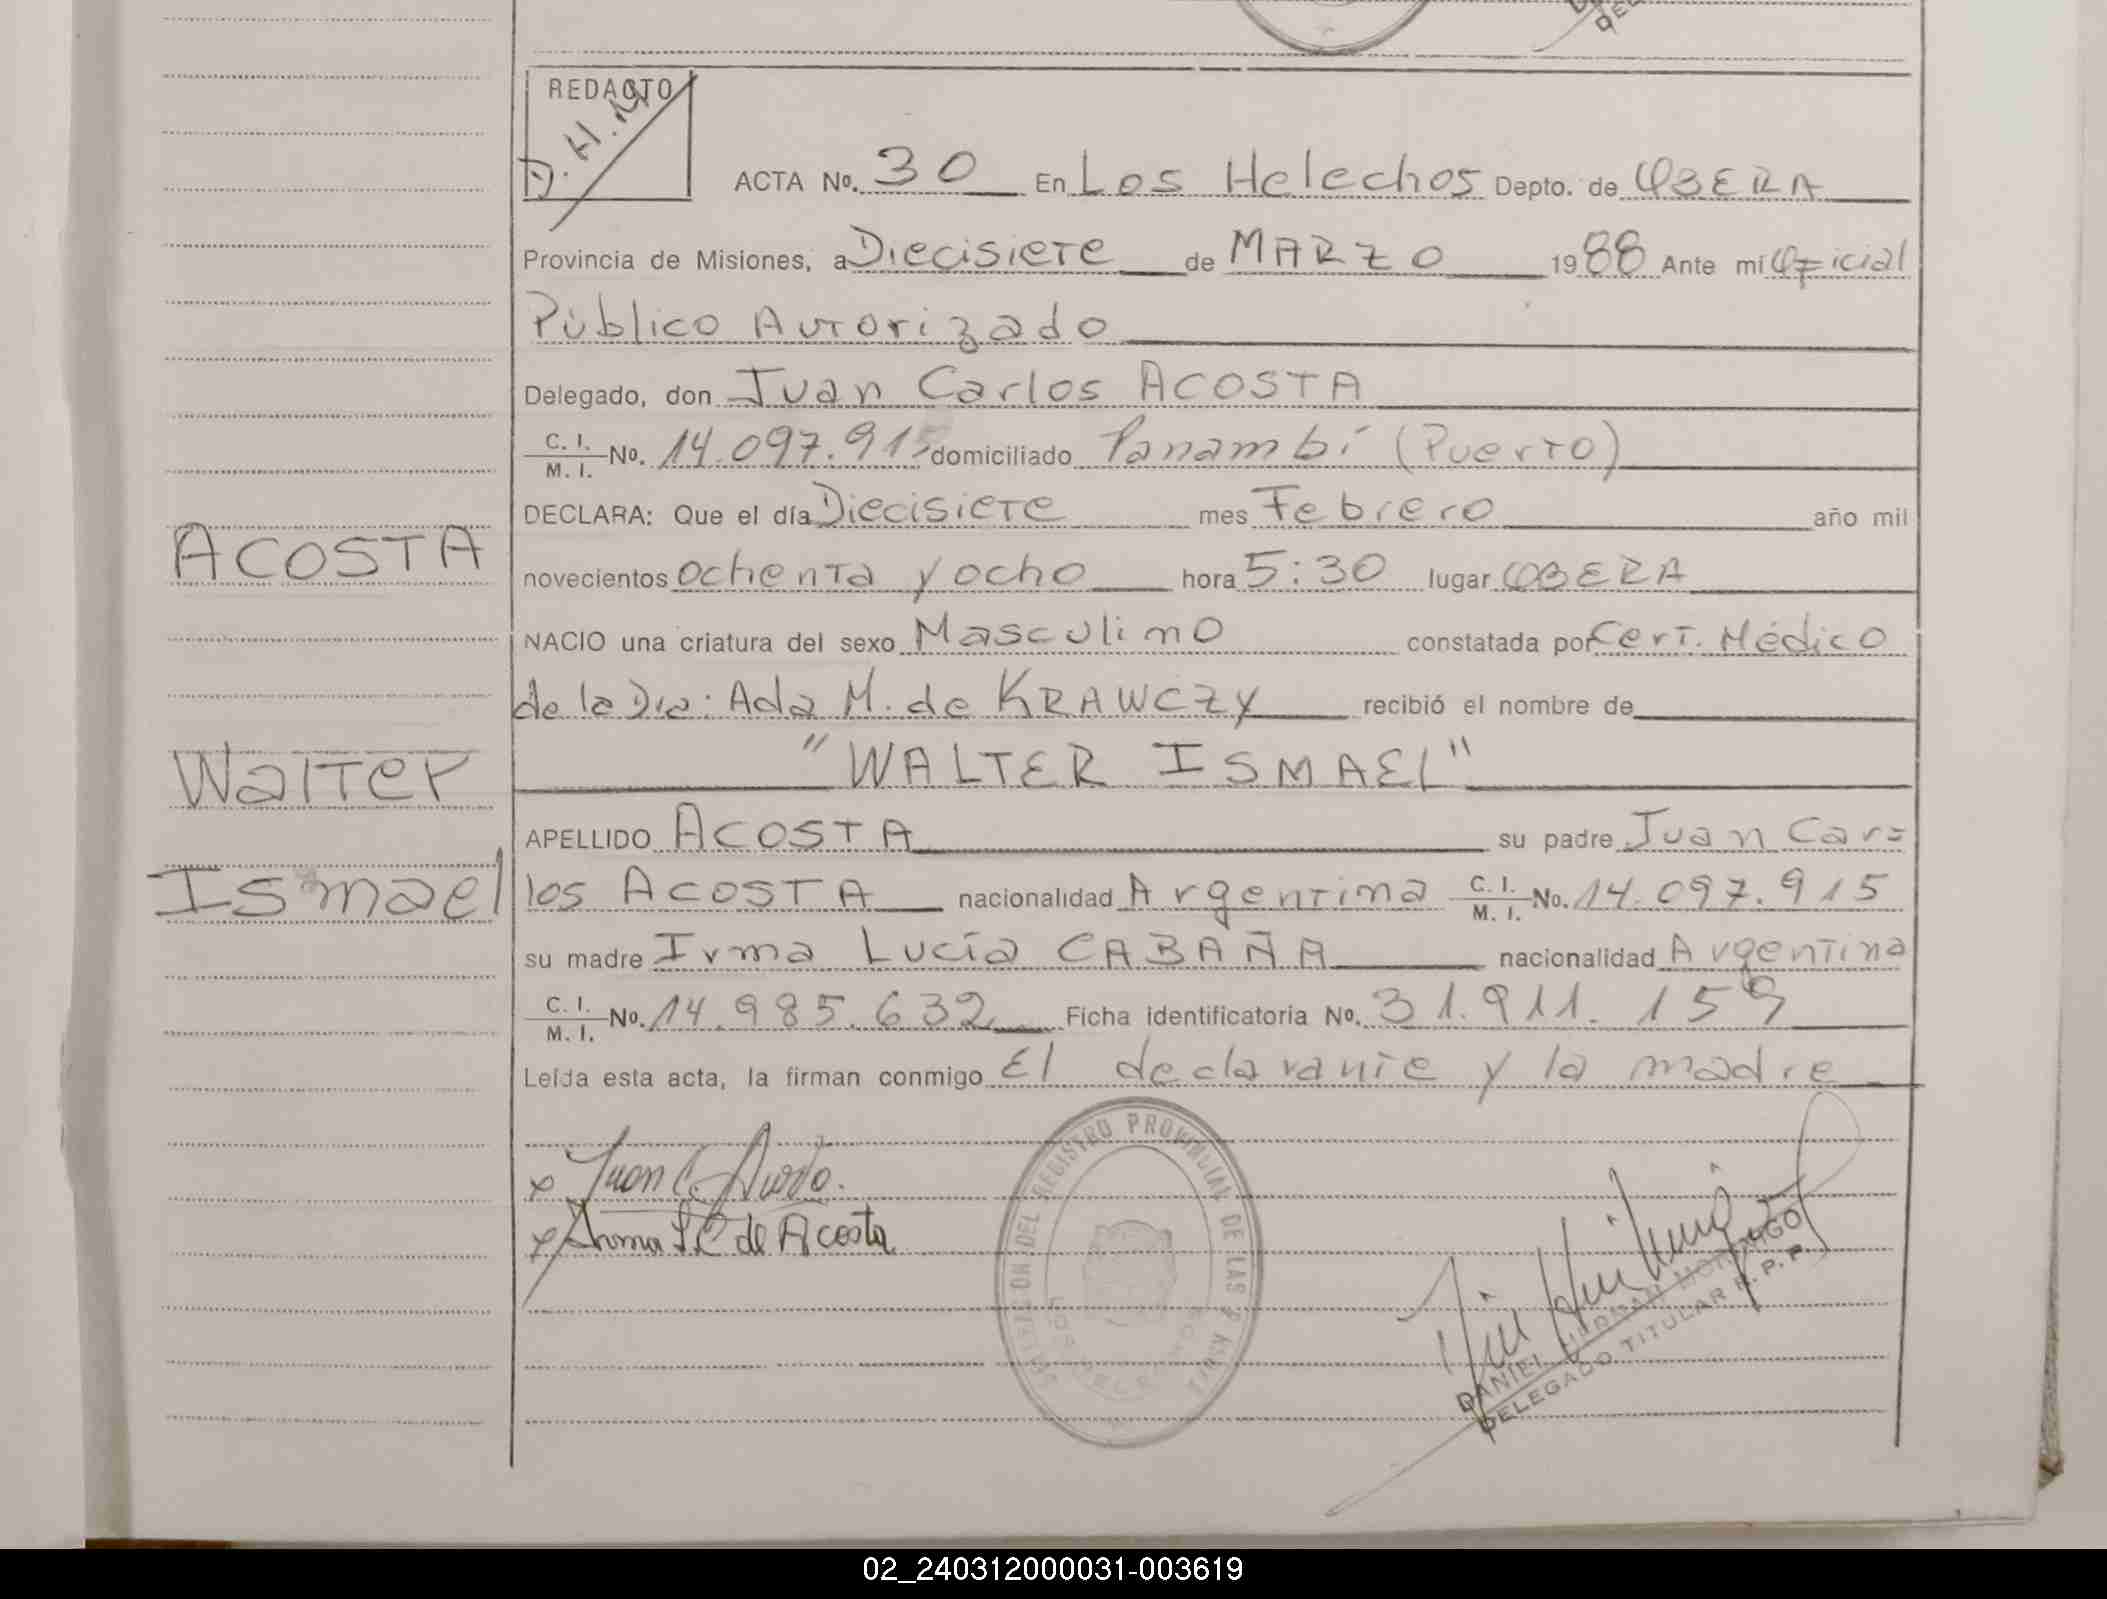 REDACTO
D. H. M
ACTA No. 30 En Los Helechos Depto. de OBERA
Provincia de Misiones, a Diecisiete de MARZO 1988 Ante mi Oficial
Público Autorizado
Delegado, don Juan Carlos ACOSTA
C. I. / M. I. No. 14.097.915 domiciliado Panambí (Puerto)
DECLARA: Que el día Diecisiete mes Febrero año mil
novecientos ochenta y ocho hora 5:30 lugar OBERA
NACIO una criatura del sexo Masculino constatada por Cert. Médico
de la Dra: Ada M. de KRAWCZY recibió el nombre de
"WALTER ISMAEL"
APELLIDO ACOSTA su padre Juan Car=
los ACOSTA nacionalidad Argentina C. I. / M. I. No. 14.097.915
su madre Irma Lucía CABAÑA nacionalidad Argentina
C. I. / M. I. No. 14.985.632 Ficha identificatoria No. 31.911.159
Leída esta acta, la firman conmigo El declarante y la madre
ACOSTA
Walter
Ismael
x Juan C. Acosta.
x Irma L. C de Acosta
DEL REGISTRO PROVINCIAL DE LAS
DANIEL HERNAN
DELEGADO TITULAR R. P. P.
02_240312000031-003619